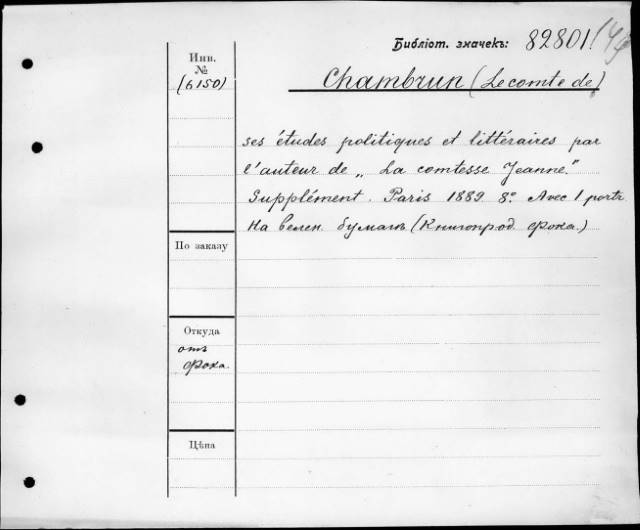 Библіот. значекъ: 82801
Инв.
№
(6150)
Chambrun (Le comte de)
ses études politiques et littéraires par
l'auteur de „La comtesse Jeanne."
Supplément. Paris 1889. 8º. Avec 1 portr.
На велен. бумагѣ (Книгопрод. Фока.)
По заказу
Откуда
отъ
Фока.
Цѣна